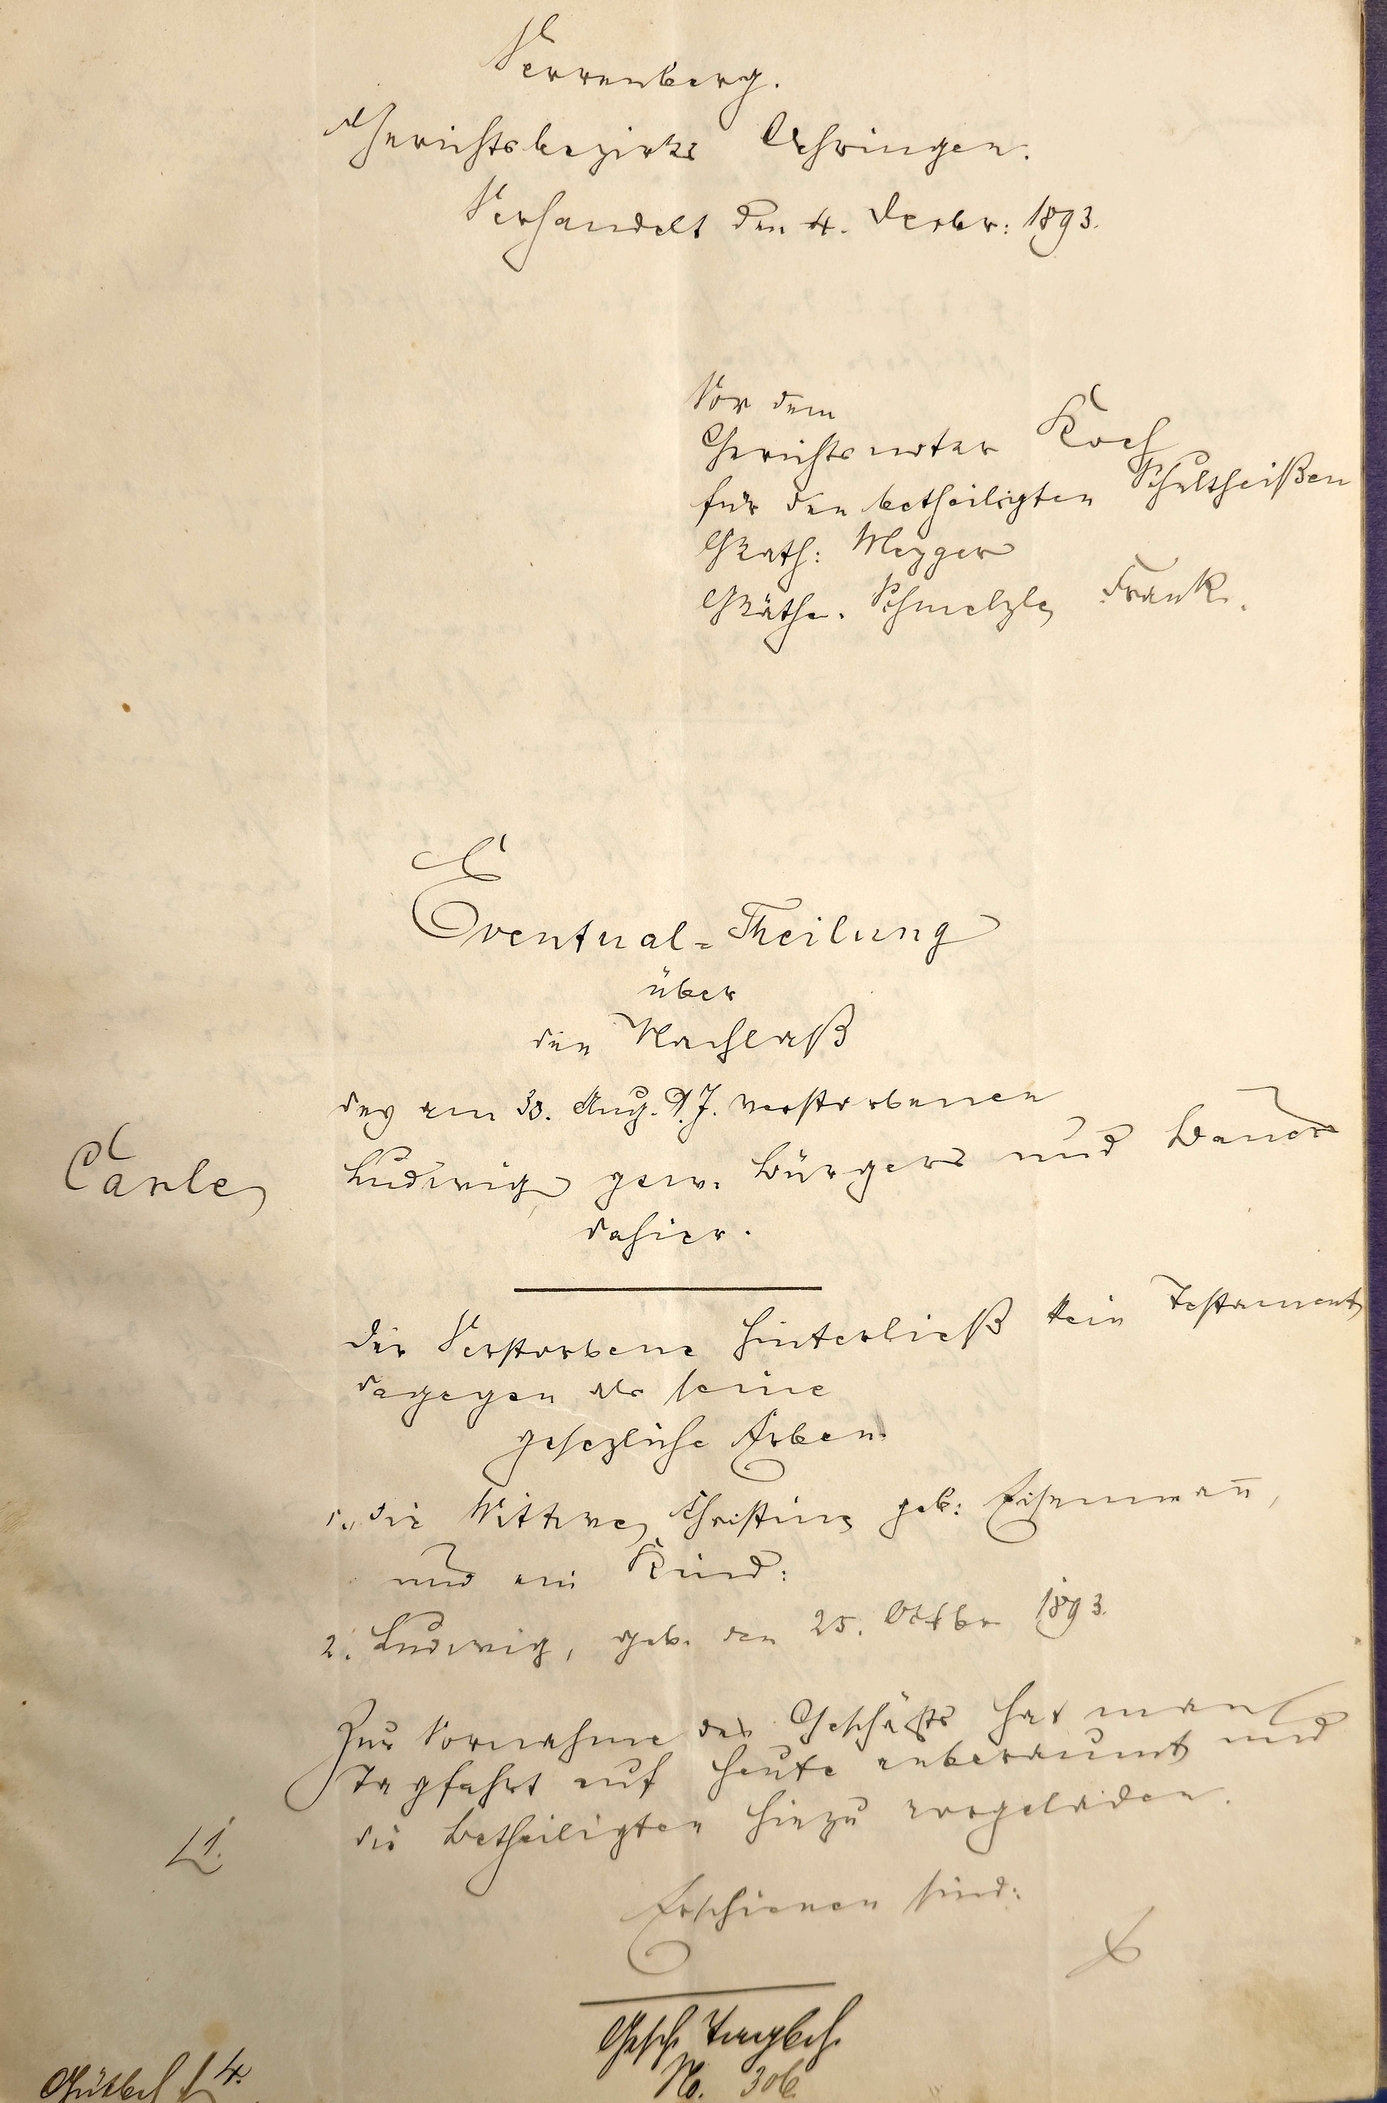 Verrenberg.
Gerichtsbezirks Oehringen.
Verhandelt den 4. Dezbr: 1893.
Vor dem
Gerichtsnotar Koch
für den betheiligten Schultheißen
GRath: Mezger
GRäthe. Schmelzle, Frank.
Eventual-Theilung
über
den Nachlaß
des am 30. Aug. d. J. verstorbenen
Carle, Ludwig, gew. Bürgers und Bauers
dahier.
Der Verstorbene hinterließ kein Testament
dagegen als seine
gesezliche Erben
1., die Wittwe, Christine geb: Eisenmañ,
und ein Kind:
2. Ludwig, geb. den 25. Oktbr 1893.
Zur Vornahme des Geschäfts hat man
Tagfahrt auf heute anberaumt und
die Betheiligten hiezu vorgeladen.
§ 1.
Erschienen sind:
Gesch. Tagbch.
No. 306.
Gütbch § 4.